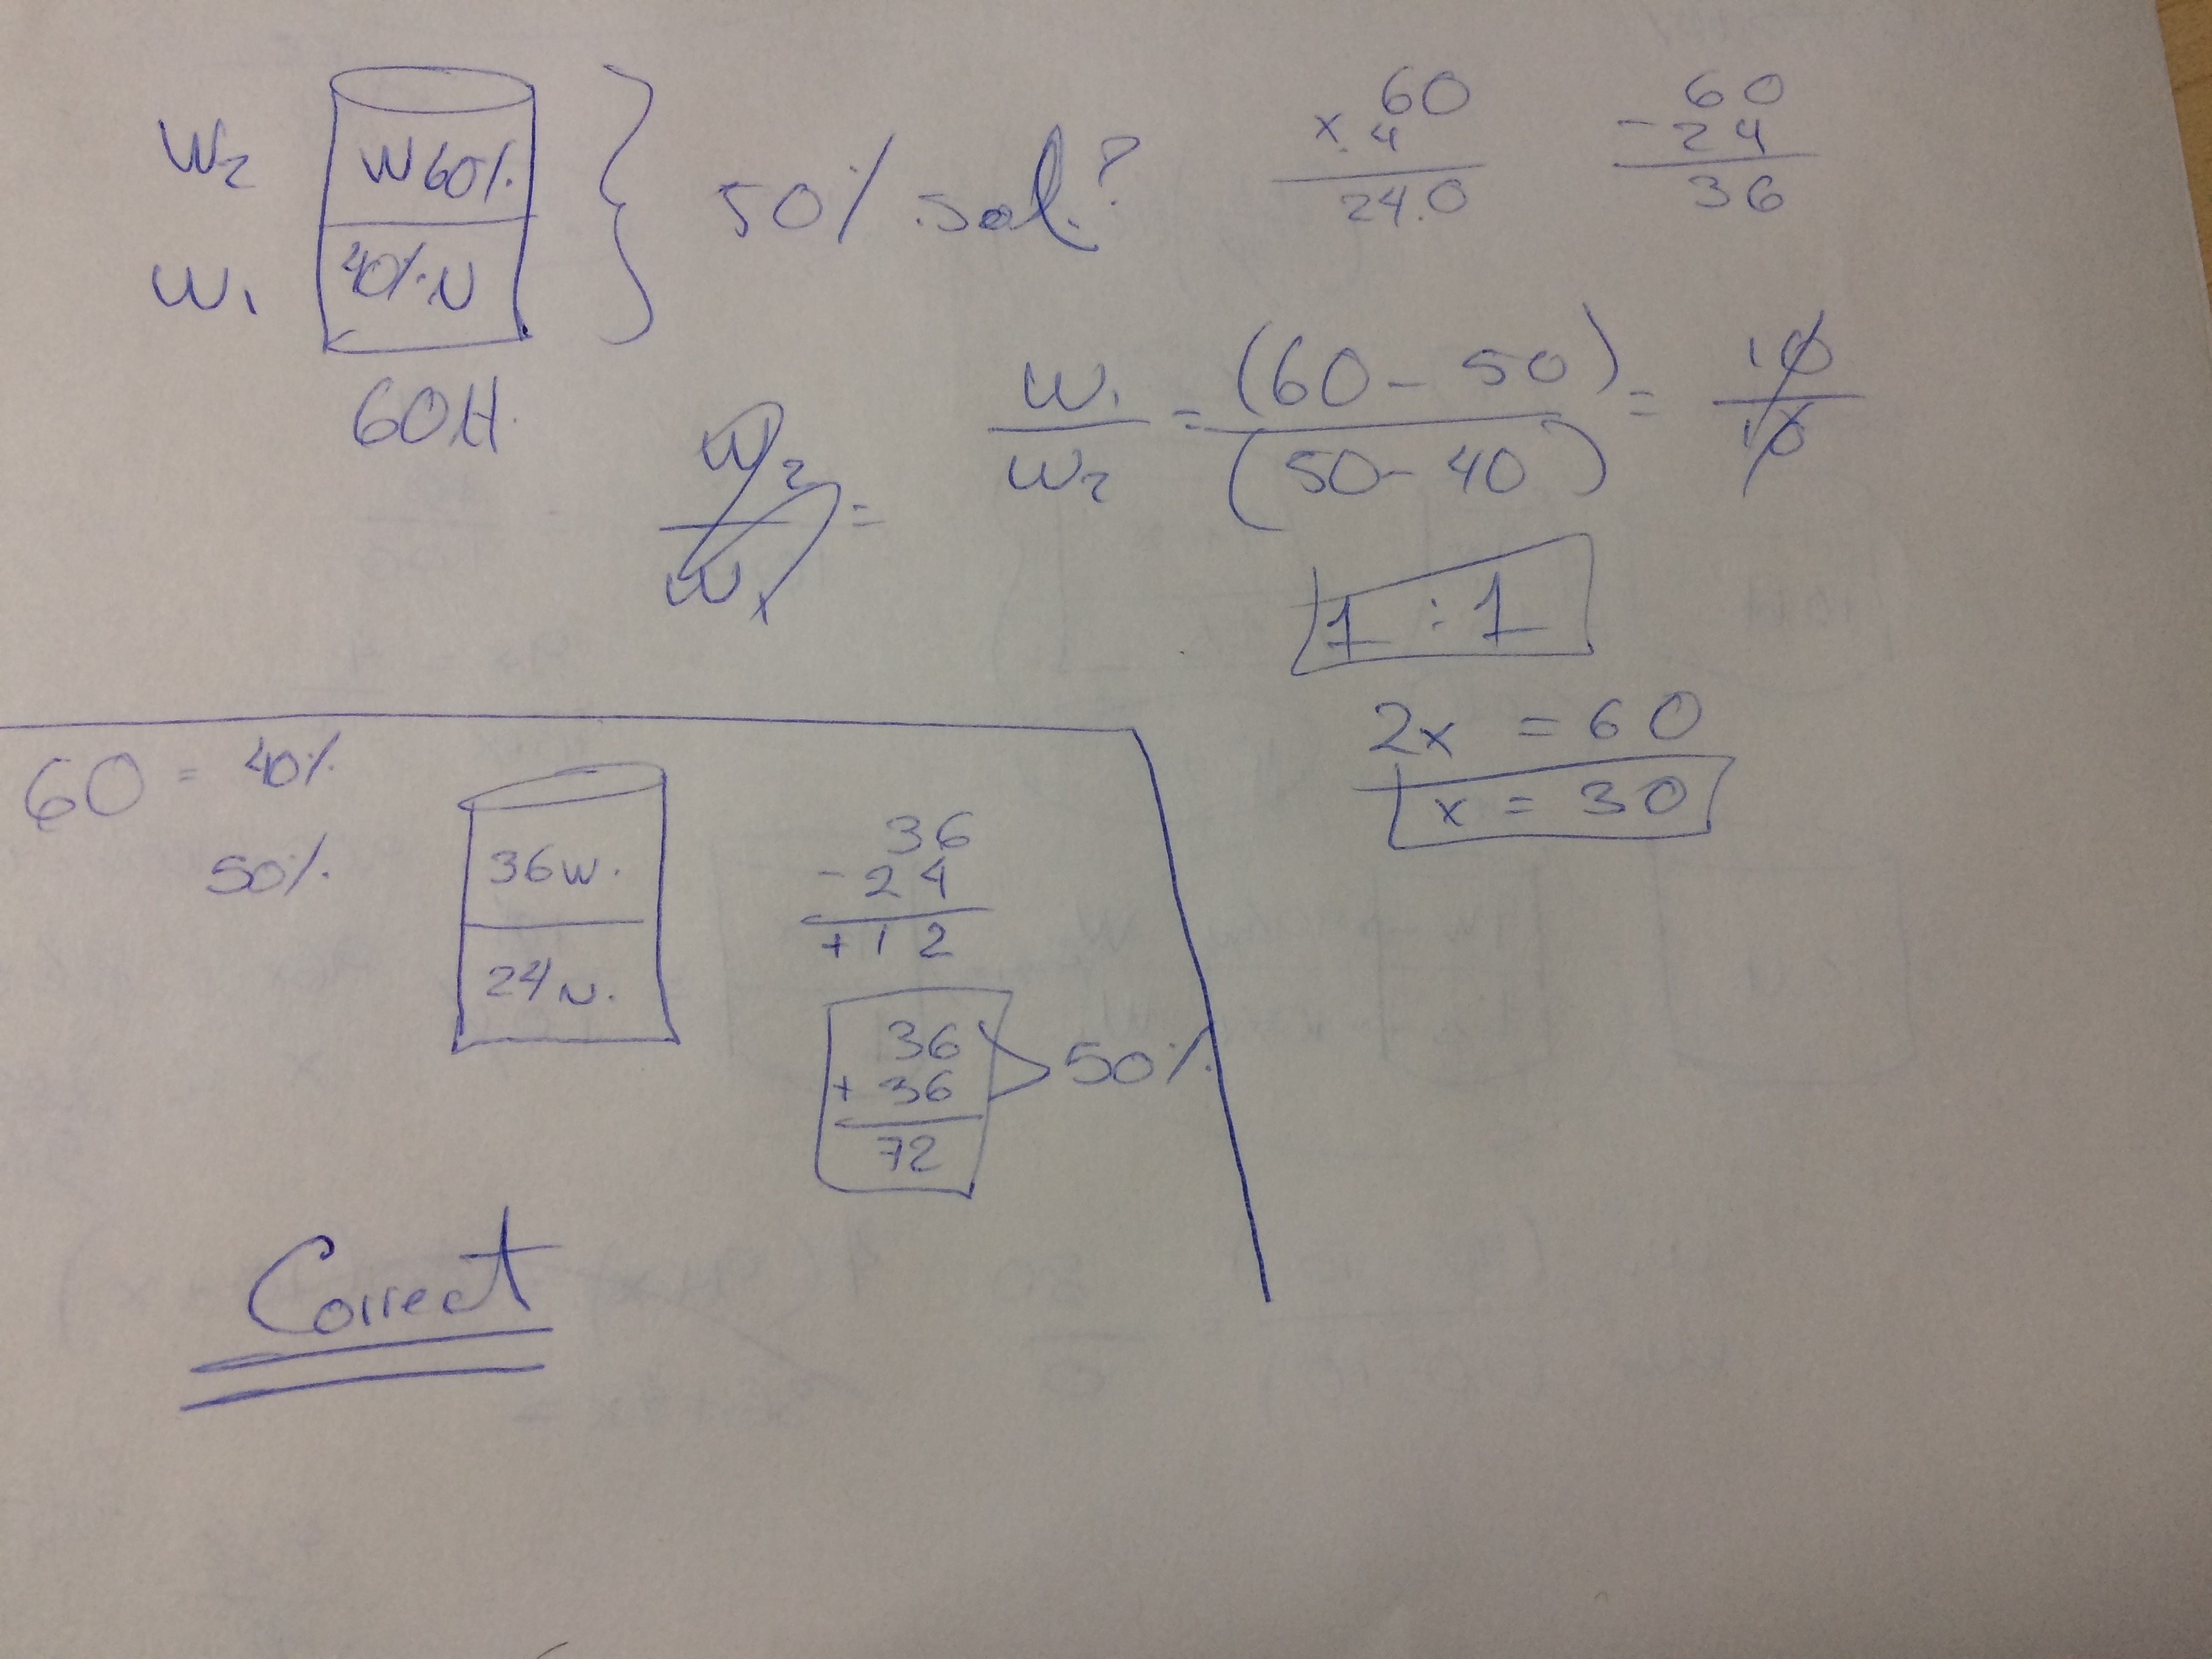 W2 W60%. 50% sol.?
W1 40%.N
60H.
60
x.4
24.0
60
- 24
36
W2 / W1 =
W1 / W2 = (60 - 50) / (50 - 40) = 10 / 10
1 : 1
2x = 60
x = 30
60 = 40%
50%.
36W.
24N.
36
- 24
+12
36
+ 36
72
50%.
Correct